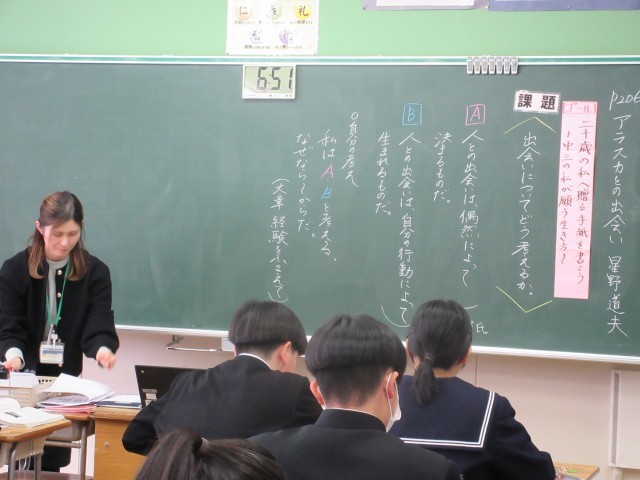 p206 アラスカとの出会い 星野道夫
ゴール
二十歳の私へ贈る手紙を書こう
〜中三の私が願う生き方〜
課題
出会いについてどう考えるか。
A
人との出会いは、偶然によって
決まるものだ。
B
人との出会いは、自分の行動によって
生まれるものだ。
○自分の考え
私は A B と考える。
なぜなら〜からだ。
(文章・経験をふまえて)
6:51
仁
礼